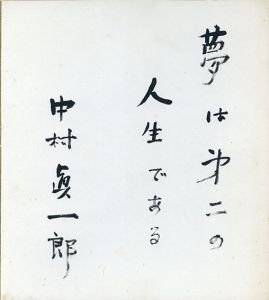 夢は第二の
人生である
中村眞一郎